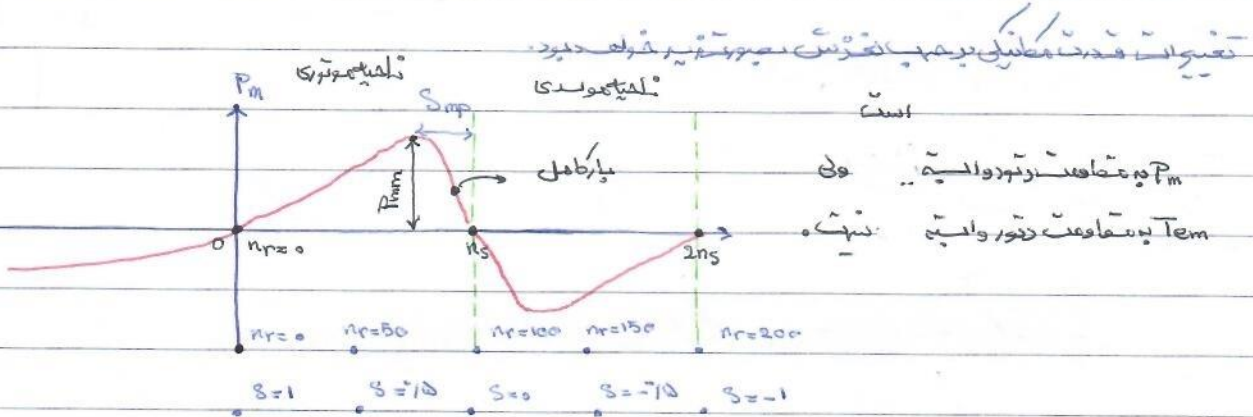 تغییرات قدرت مکانیکی برحسب لغزش بصورت زیر خواهد بود.
ناحیه موتوری
ناحیه مولدی
Pm
Smp
است
Pmm
بارکامل
Pm به مقاومت رتور وابسته .. ولی
Tem به مقاومت رتور وابسته نیست.
0
nr=0
ns
2ns
nr=0 nr=50 nr=100 nr=150 nr=200
S=1 S=۰/۵ S=0 S=-۰/۵ S=-1